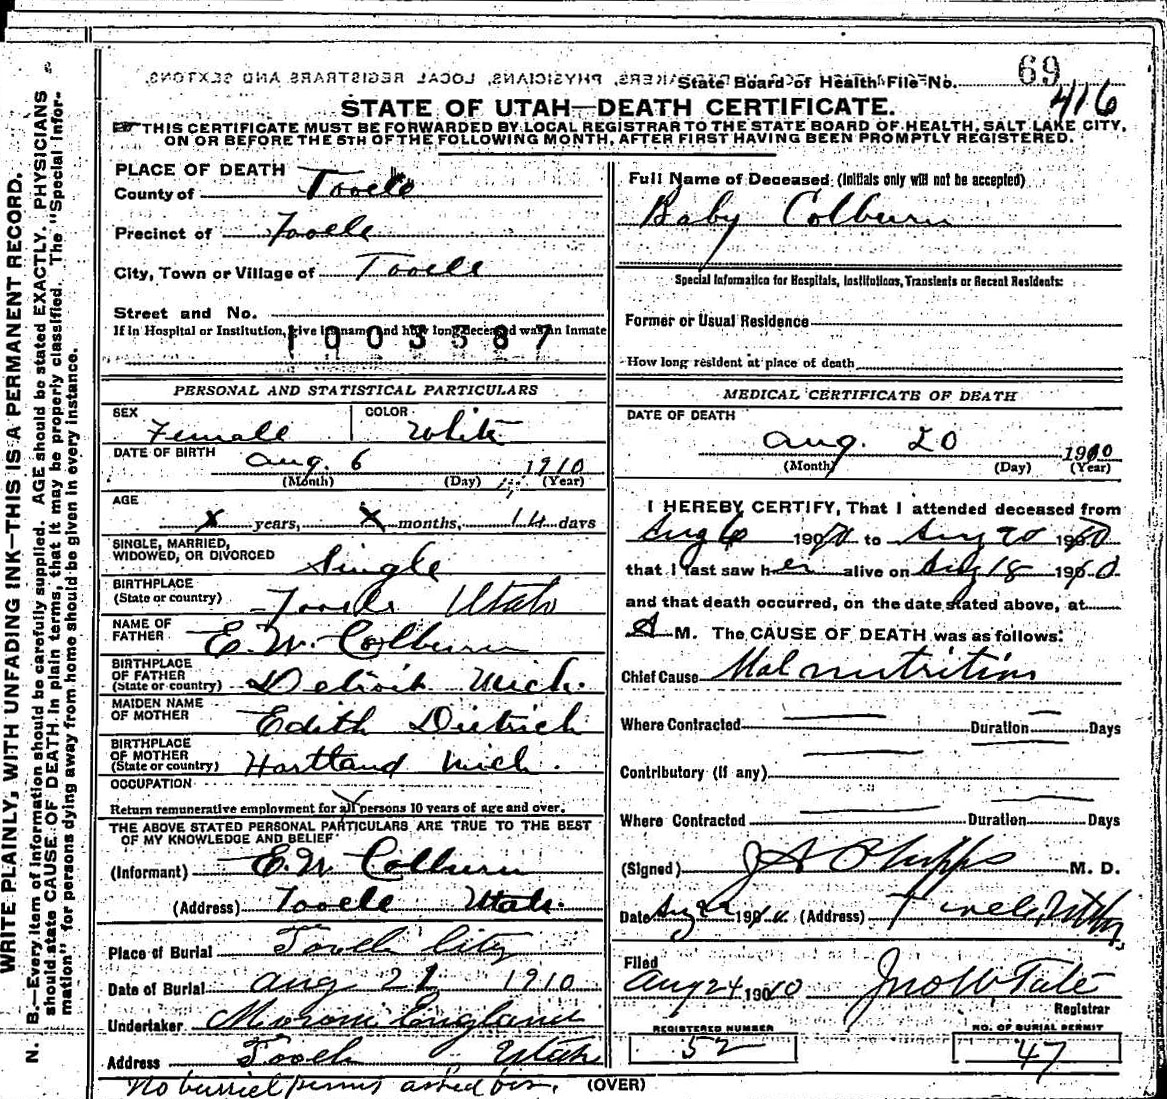 WRITE PLAINLY, WITH UNFADING INK—THIS IS A PERMANENT RECORD.
N. B.—Every item of information should be carefully supplied. AGE should be stated EXACTLY. PHYSICIANS
should state CAUSE OF DEATH in plain terms, that it may be properly classified. The "Special Infor-
mation" for persons dying away from home should be given in every instance.
State Board of Health File No. 69
416
STATE OF UTAH—DEATH CERTIFICATE.
THIS CERTIFICATE MUST BE FORWARDED BY LOCAL REGISTRAR TO THE STATE BOARD OF HEALTH, SALT LAKE CITY,
ON OR BEFORE THE 5TH OF THE FOLLOWING MONTH, AFTER FIRST HAVING BEEN PROMPTLY REGISTERED.
PLACE OF DEATH
County of Tooele
Precinct of Tooele
City, Town or Village of Tooele
Street and No.
If in Hospital or Institution, give its name and how long deceased was an inmate
1003587
PERSONAL AND STATISTICAL PARTICULARS
SEX Female COLOR White
DATE OF BIRTH Aug. 6 1910
(Month) (Day) (Year)
AGE
x years, x months, 14 days
SINGLE, MARRIED,
WIDOWED, OR DIVORCED Single
BIRTHPLACE
(State or country) Tooele Utah
NAME OF
FATHER E. W. Colburn
BIRTHPLACE
OF FATHER
(State or country) Detroit Mich.
MAIDEN NAME
OF MOTHER Edith Dietrich
BIRTHPLACE
OF MOTHER
(State or country) Hartland Mich.
OCCUPATION
Return remunerative employment for all persons 10 years of age and over.
THE ABOVE STATED PERSONAL PARTICULARS ARE TRUE TO THE BEST
OF MY KNOWLEDGE AND BELIEF
(Informant) E. W. Colburn
(Address) Tooele Utah.
Place of Burial Tooele City
Date of Burial Aug 21 1910
Undertaker Moroni England
Address Tooele Utah
No burriel permit asked
(OVER)
Full Name of Deceased (Initials only will not be accepted)
Baby Colburn
Special Information for Hospitals, Institutions, Transients or Recent Residents:
Former or Usual Residence
How long resident at place of death
MEDICAL CERTIFICATE OF DEATH
DATE OF DEATH
Aug. 20 1910
(Month) (Day) (Year)
I HEREBY CERTIFY, That I attended deceased from
Aug 6 1910 to Aug 20 1910
that I last saw her alive on Aug 18 1910
and that death occurred, on the date stated above, at
A M. The CAUSE OF DEATH was as follows:
Chief Cause Malnutrition
Where Contracted Duration Days
Contributory (if any)
Where Contracted Duration Days
(Signed) J A Phipps M. D.
Date Aug 22 1910 (Address) Tooele Utah
Filed
Aug 24 1910 Jno W Tate
Registrar
REGISTERED NUMBER
52
NO. OF BURIAL PERMIT
47